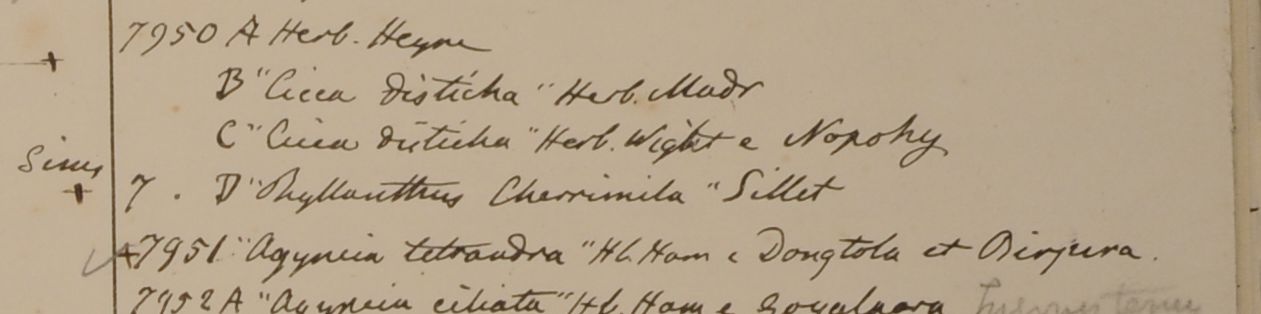 7950 A Herb. Heyne
B "Cicca disticha" Herb. Madr
C "Cicca disticha" Herb. Wight e Nopohy
Sinus
7. D "Phyllanthus Cherrimila" Sillet
7951 "Agyneia tetrandra" Hb. Ham e Dongtola et Birjura.
7952 A "Agyneia ciliata" Hb. Ham e Goyalpara